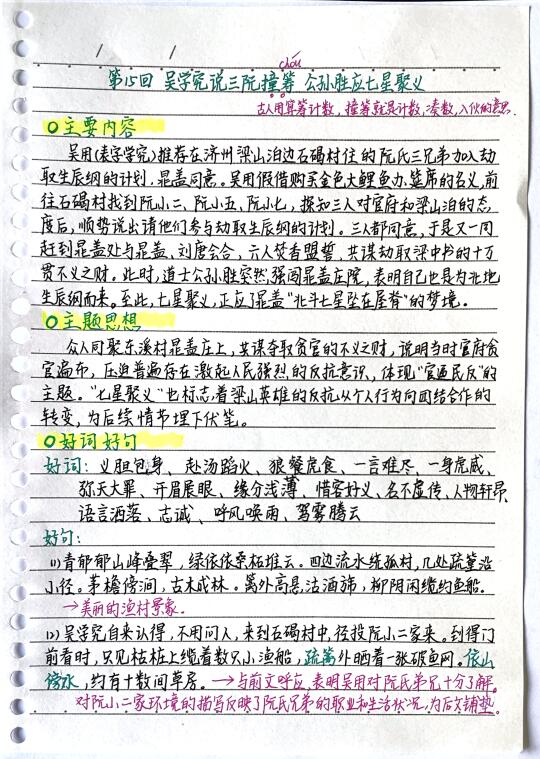 chōu
第15回 吴学究说三阮撞筹 公孙胜应七星聚义
古人用算筹计数，撞筹就是计数，凑数，入伙的意思.
主要内容
吴用(表字学究)推荐在济州梁山泊边石碣村住的阮氏三兄弟加入劫
取生辰纲的计划，晁盖同意。吴用假借购买金色大鲤鱼办筵席的名义，前
往石碣村找到阮小二、阮小五、阮小七，探知三人对官府和梁山泊的态
度后，顺势说出请他们参与劫取生辰纲的计划。三人都同意，于是又一同
赶到晁盖处与晁盖、刘唐会合，六人焚香盟誓，共谋劫取梁中书的十万
贯不义之财。此时，道士公孙胜突然强闯晁盖庄院，表明自己也是为北地
生辰纲而来。至此，七星聚义，正应了晁盖“北斗七星坠在屋脊”的梦境。
主题思想
众人同聚东溪村晁盖庄上，共谋夺取贪官的不义之财，说明当时官府贪
官遍布，压迫普遍存在激起人民强烈的反抗意识，体现“官逼民反”的
主题。“七星聚义”也标志着梁山英雄的反抗从个人行为向团结合作的
转变，为后续情节埋下伏笔。
好词好句
好词：义胆包身、赴汤蹈火、狼餐虎食、一言难尽、一身虎威、
弥天大罪、开眉展眼、缘分浅薄、惜客好义、名不虚传、人物轩昂、
语言洒落、志诚、呼风唤雨、驾雾腾云
好句：
(1)青郁郁山峰叠翠，绿依依桑柘堆云。四边流水绕孤村，几处疏篁沿
小径。茅檐傍涧，古木成林。篱外高悬沽酒旆，柳阴闲缆钓鱼船.
→美丽的渔村景象.
(2)吴学究自来认得，不用问人，来到石碣村中，径投阮小二家来。到得门
前看时，只见枯桩上缆着数只小渔船，疏篱外晒着一张破鱼网。依山
傍水，约有十数间草房。→与前文呼应，表明吴用对阮氏弟兄十分了解。
对阮小二家环境的描写反映了阮氏兄弟的职业和生活状况，为后文铺垫。